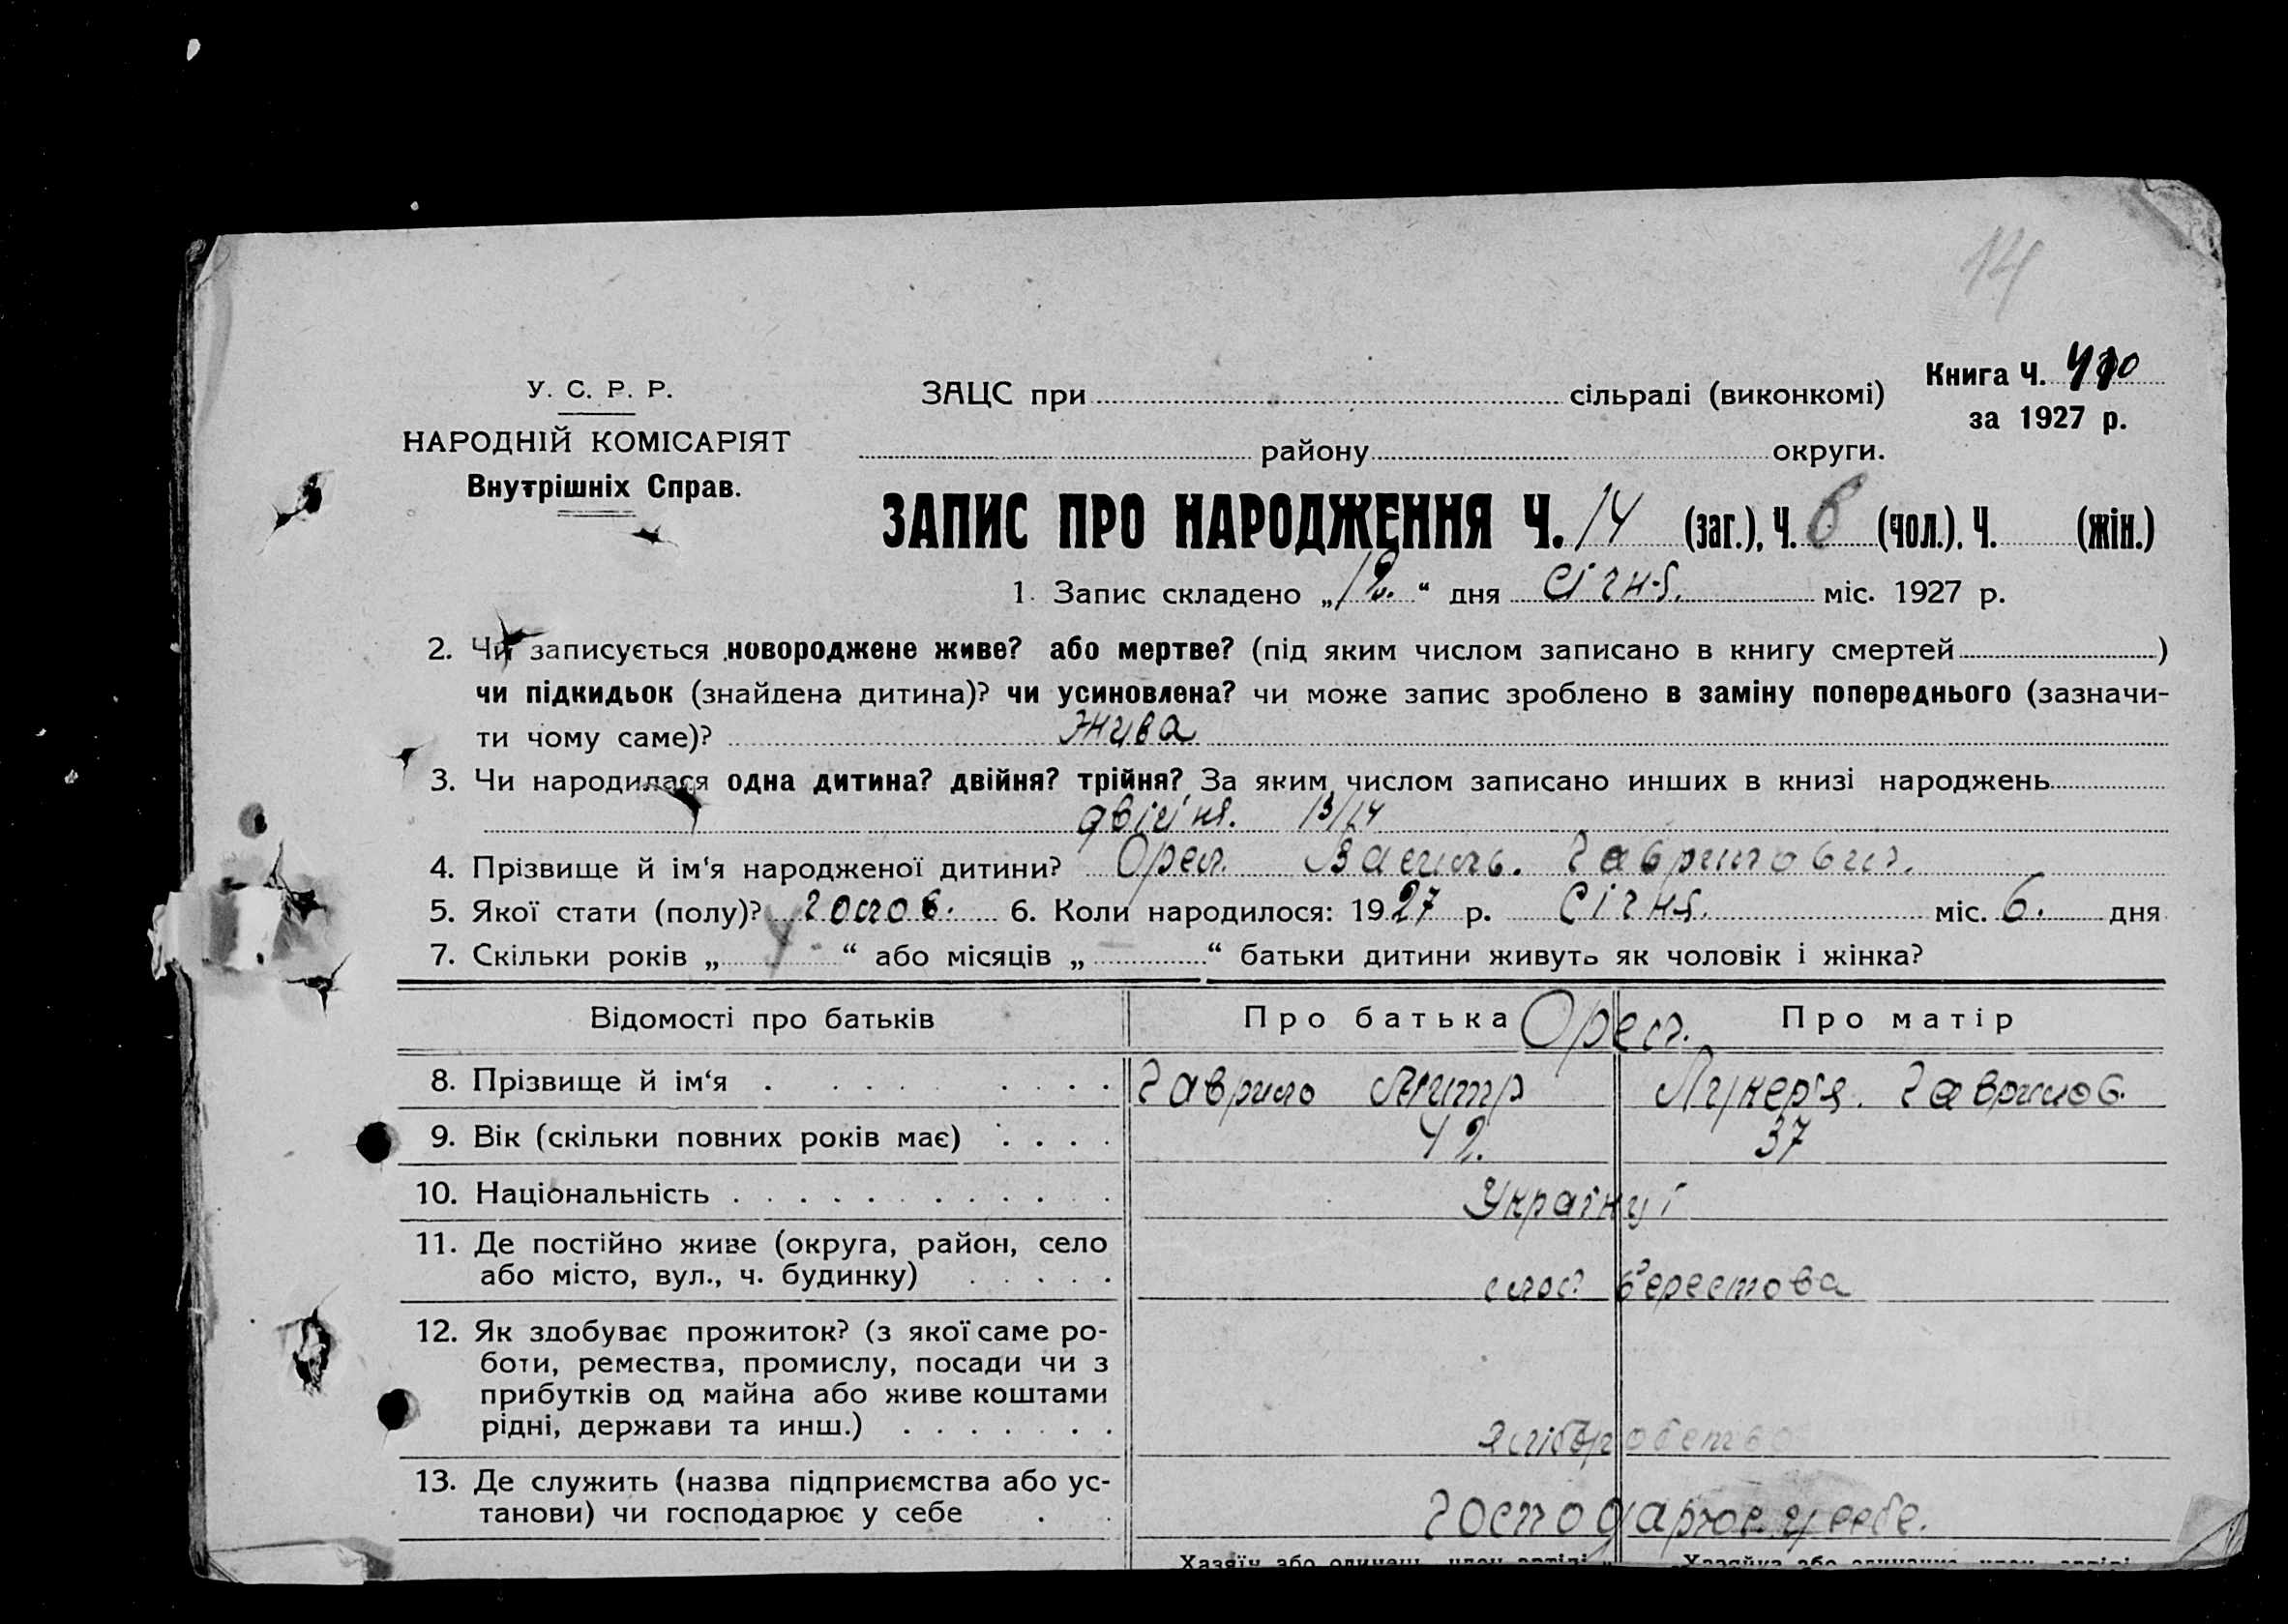 14
У. С. Р. Р.
НАРОДНІЙ КОМІСАРІЯТ
Внутрішніх Справ.
ЗАЦС при сільраді (виконкомі)
району округи.
Книга Ч.
за 1927 р.
ЗАПИС ПРО НАРОДЖЕННЯ Ч. 14 (заг.), Ч. 6 (чол.), Ч. (жін.)
1. Запис складено „12.“ дня січня. міс. 1927 р.
2. Чи записується новороджене живе? або мертве? (під яким числом записано в книгу смертей )
чи підкидьок (знайдена дитина)? чи усиновлена? чи може запис зроблено в заміну попереднього (зазначи-
ти чому саме)? жива
3. Чи народилася одна дитина? двійня? трійня? За яким числом записано инших в книзі народжень
двійня. 13/14
4. Прізвище й ім‘я народженої дитини? Орел. Василь. Гаврилович.
5. Якої стати (полу)? чолов. 6. Коли народилося: 1927 р. січня. міс. 6. дня
7. Скільки років „ “ або місяців „ “ батьки дитини живуть як чоловік і жінка?
Відомості про батьків Про батька Орел. Про матір
8. Прізвище й ім‘я . . . . . . . . Гаврило Митр Лукер'я. Гаврилов.
9. Вік (скільки повних років має) . . . . 42. 37
10. Національність . . . . . . . . . . . . Українці
11. Де постійно живе (округа, район, село
або місто, вул., ч. будинку) . . . . . слоб. Берестова
12. Як здобуває прожиток? (з якої саме ро-
боти, ремества, промислу, посади чи з
прибутків од майна або живе коштами
рідні, держави та инш.) . . . . . . . хліборобство
13. Де служить (назва підприємства або ус-
танови) чи господарює у себе . . господарює у себе.